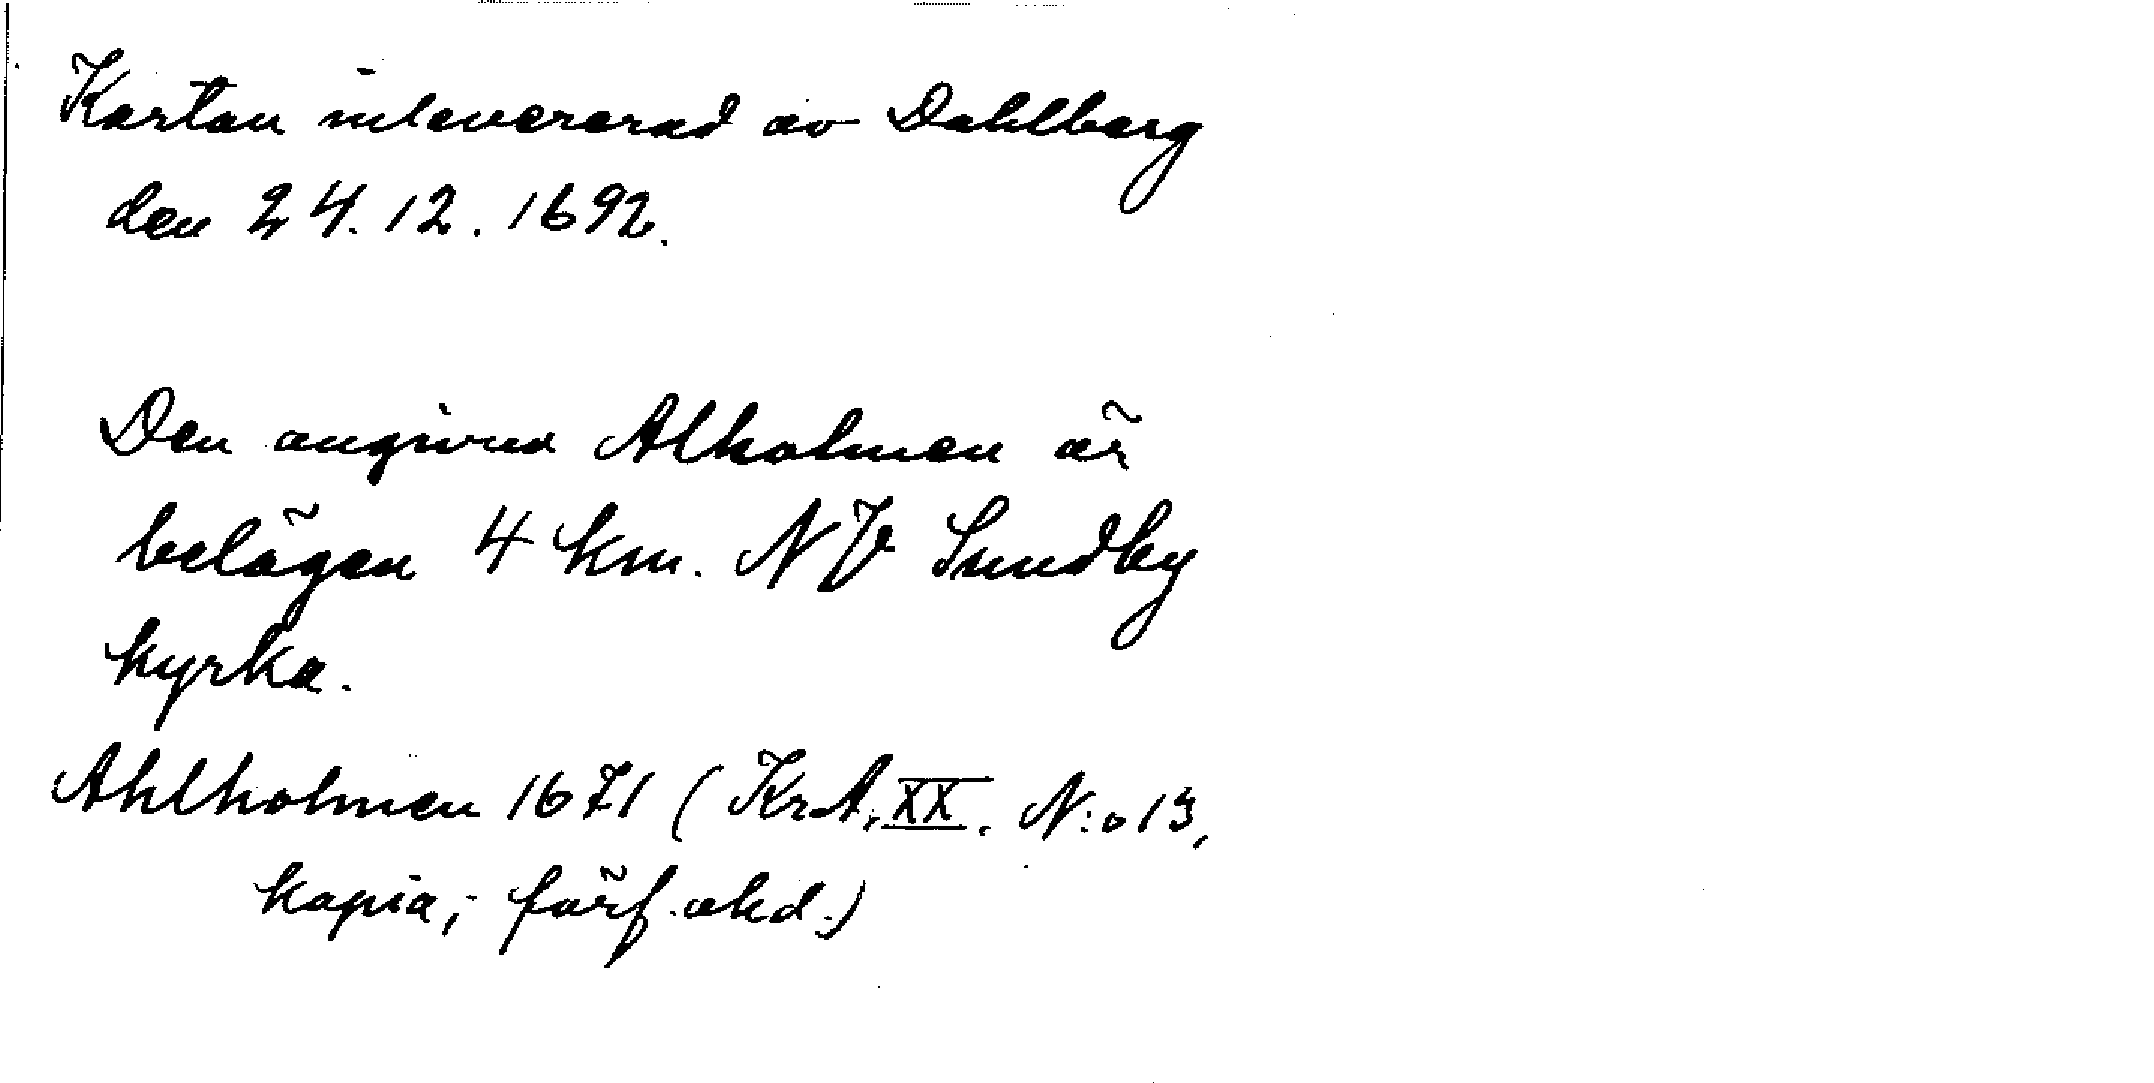 Kartan inlevererad av Dahlberg
den 24.12.1692.
Den angivna Alholmen är
belägen 4 km. NV Sundby
kyrka.
Ahlholmen 1671 (KrA, XX. N:o 13,
kopia,- förf. okd.)